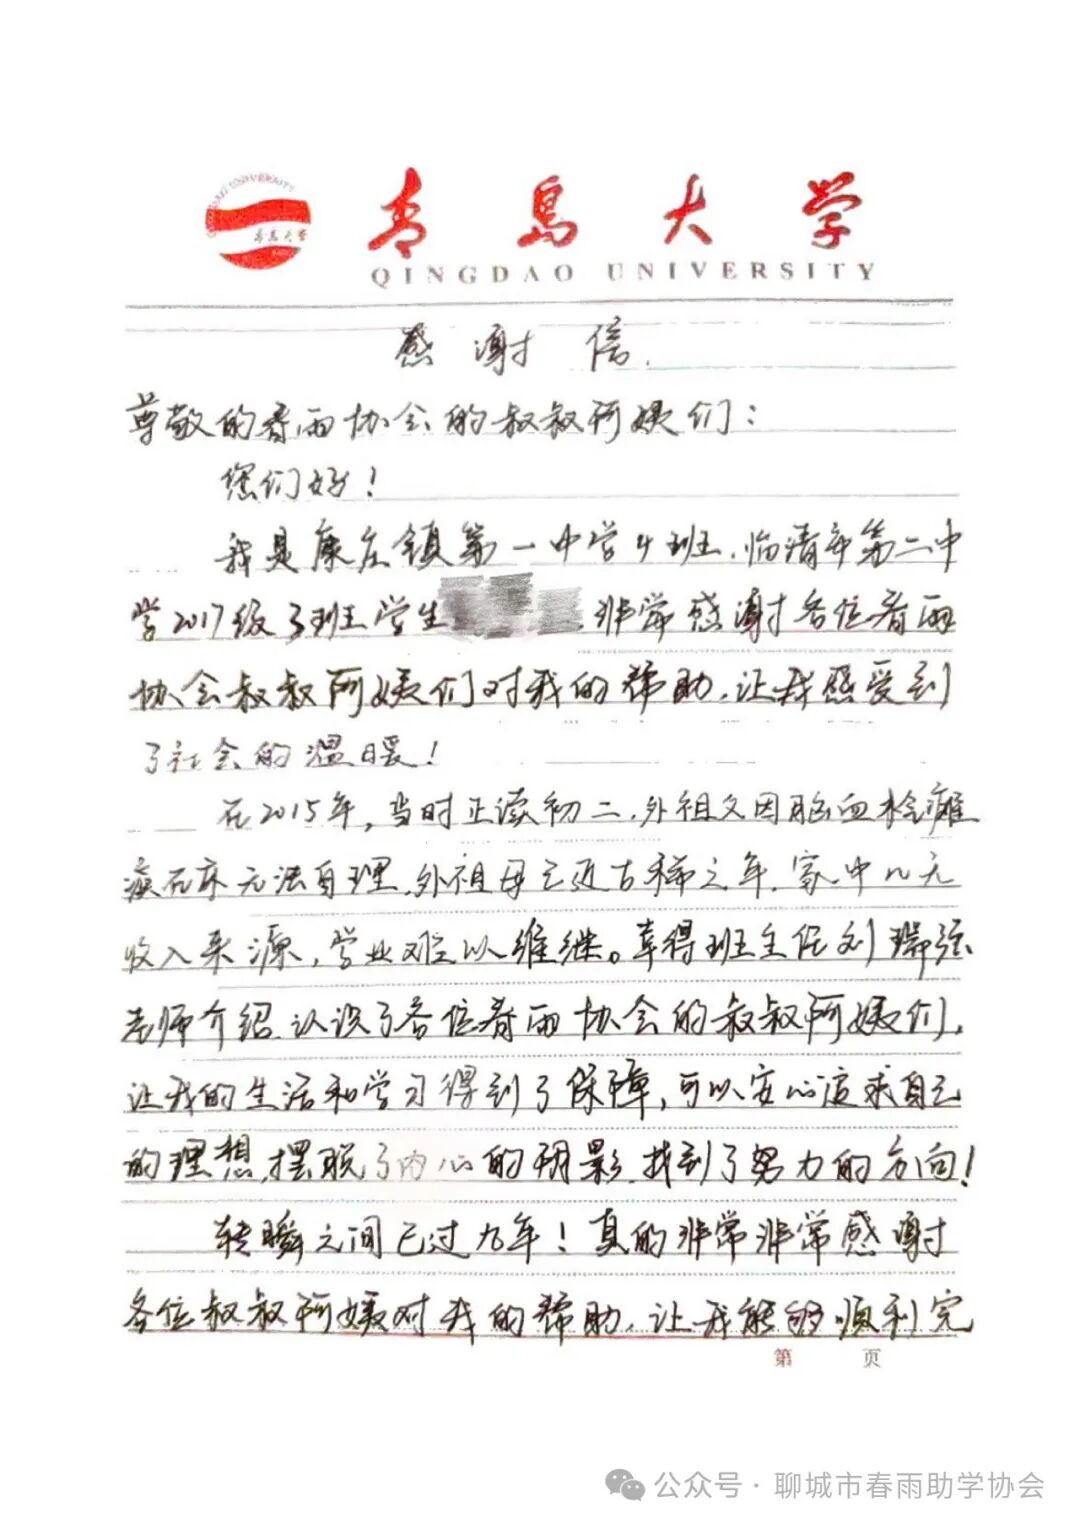 QINGDAO UNIVERSITY
青岛大学
青岛大学
QINGDAO UNIVERSITY
感谢信.
尊敬的春雨协会的叔叔阿姨们：
您们好！
我是康庄镇第一中学4班、临清市第二中
学2017级3班学生 非常感谢各位春雨
协会叔叔阿姨们对我的帮助，让我感受到
了社会的温暖！
在2015年，当时正读初二，外祖父因脑血栓瘫
痪在床无法自理，外祖母已近古稀之年，家中几无
收入来源，学业难以维继。幸得班主任刘瑞强
老师介绍，认识了各位春雨协会的叔叔阿姨们，
让我的生活和学习得到了保障，可以安心追求自己
的理想，摆脱了内心的阴影，找到了努力的方向！
转瞬之间已过九年！真的非常非常感谢
各位叔叔阿姨对我的帮助，让我能够顺利完
第 页
公众号·聊城市春雨助学协会